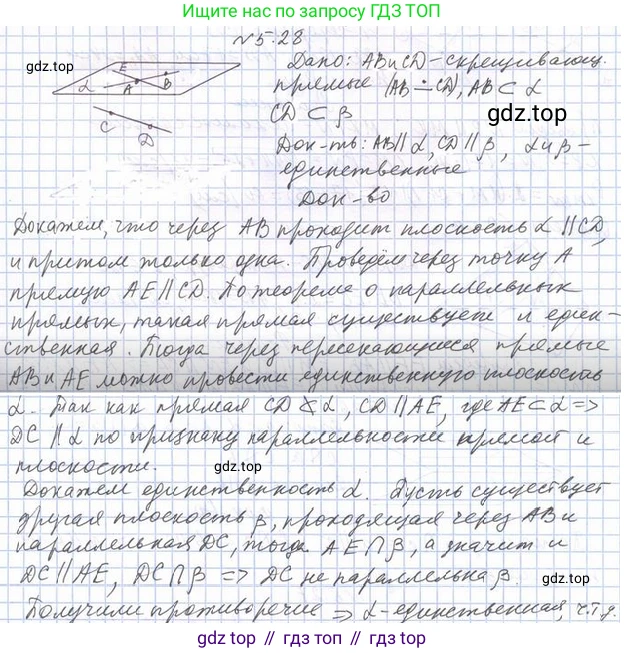 Ищите нас по запросу ГДЗ ТОП
№5.28
gdz.top
E
α
A
B
C
D
Дано: AB и CD - скрещивающ.
прямые (AB ∸ CD), AB ⊂ α
CD ⊂ β
gdz.top
Док-ть: AB || α, CD || β, α и β -
единственные
Док-во
Докажем, что через AB проходит плоскость α || CD,
и притом только одна. Проведём через точку A
прямую AE || CD. По теореме о параллельных
прямых, такая прямая существует и един-
ственная. Тогда через пересекающиеся прямые
AB и AE можно провести единственную плоскость
α. Так как прямая CD ⊄ α, CD || AE, где AE ⊂ α =>
DC || α по признаку параллельности прямой и
плоскости.
gdz.top
Докажем единственность α. Пусть существует
другая плоскость β, проходящая через AB и
параллельная DC, тогда AE ∩ β, а значит и
DC || AE, DC ∩ β => DC не параллельна β.
gdz.top
Получили противоречие => α - единственная, ч.т.д.
gdz.top // гдз.топ // гдз топ